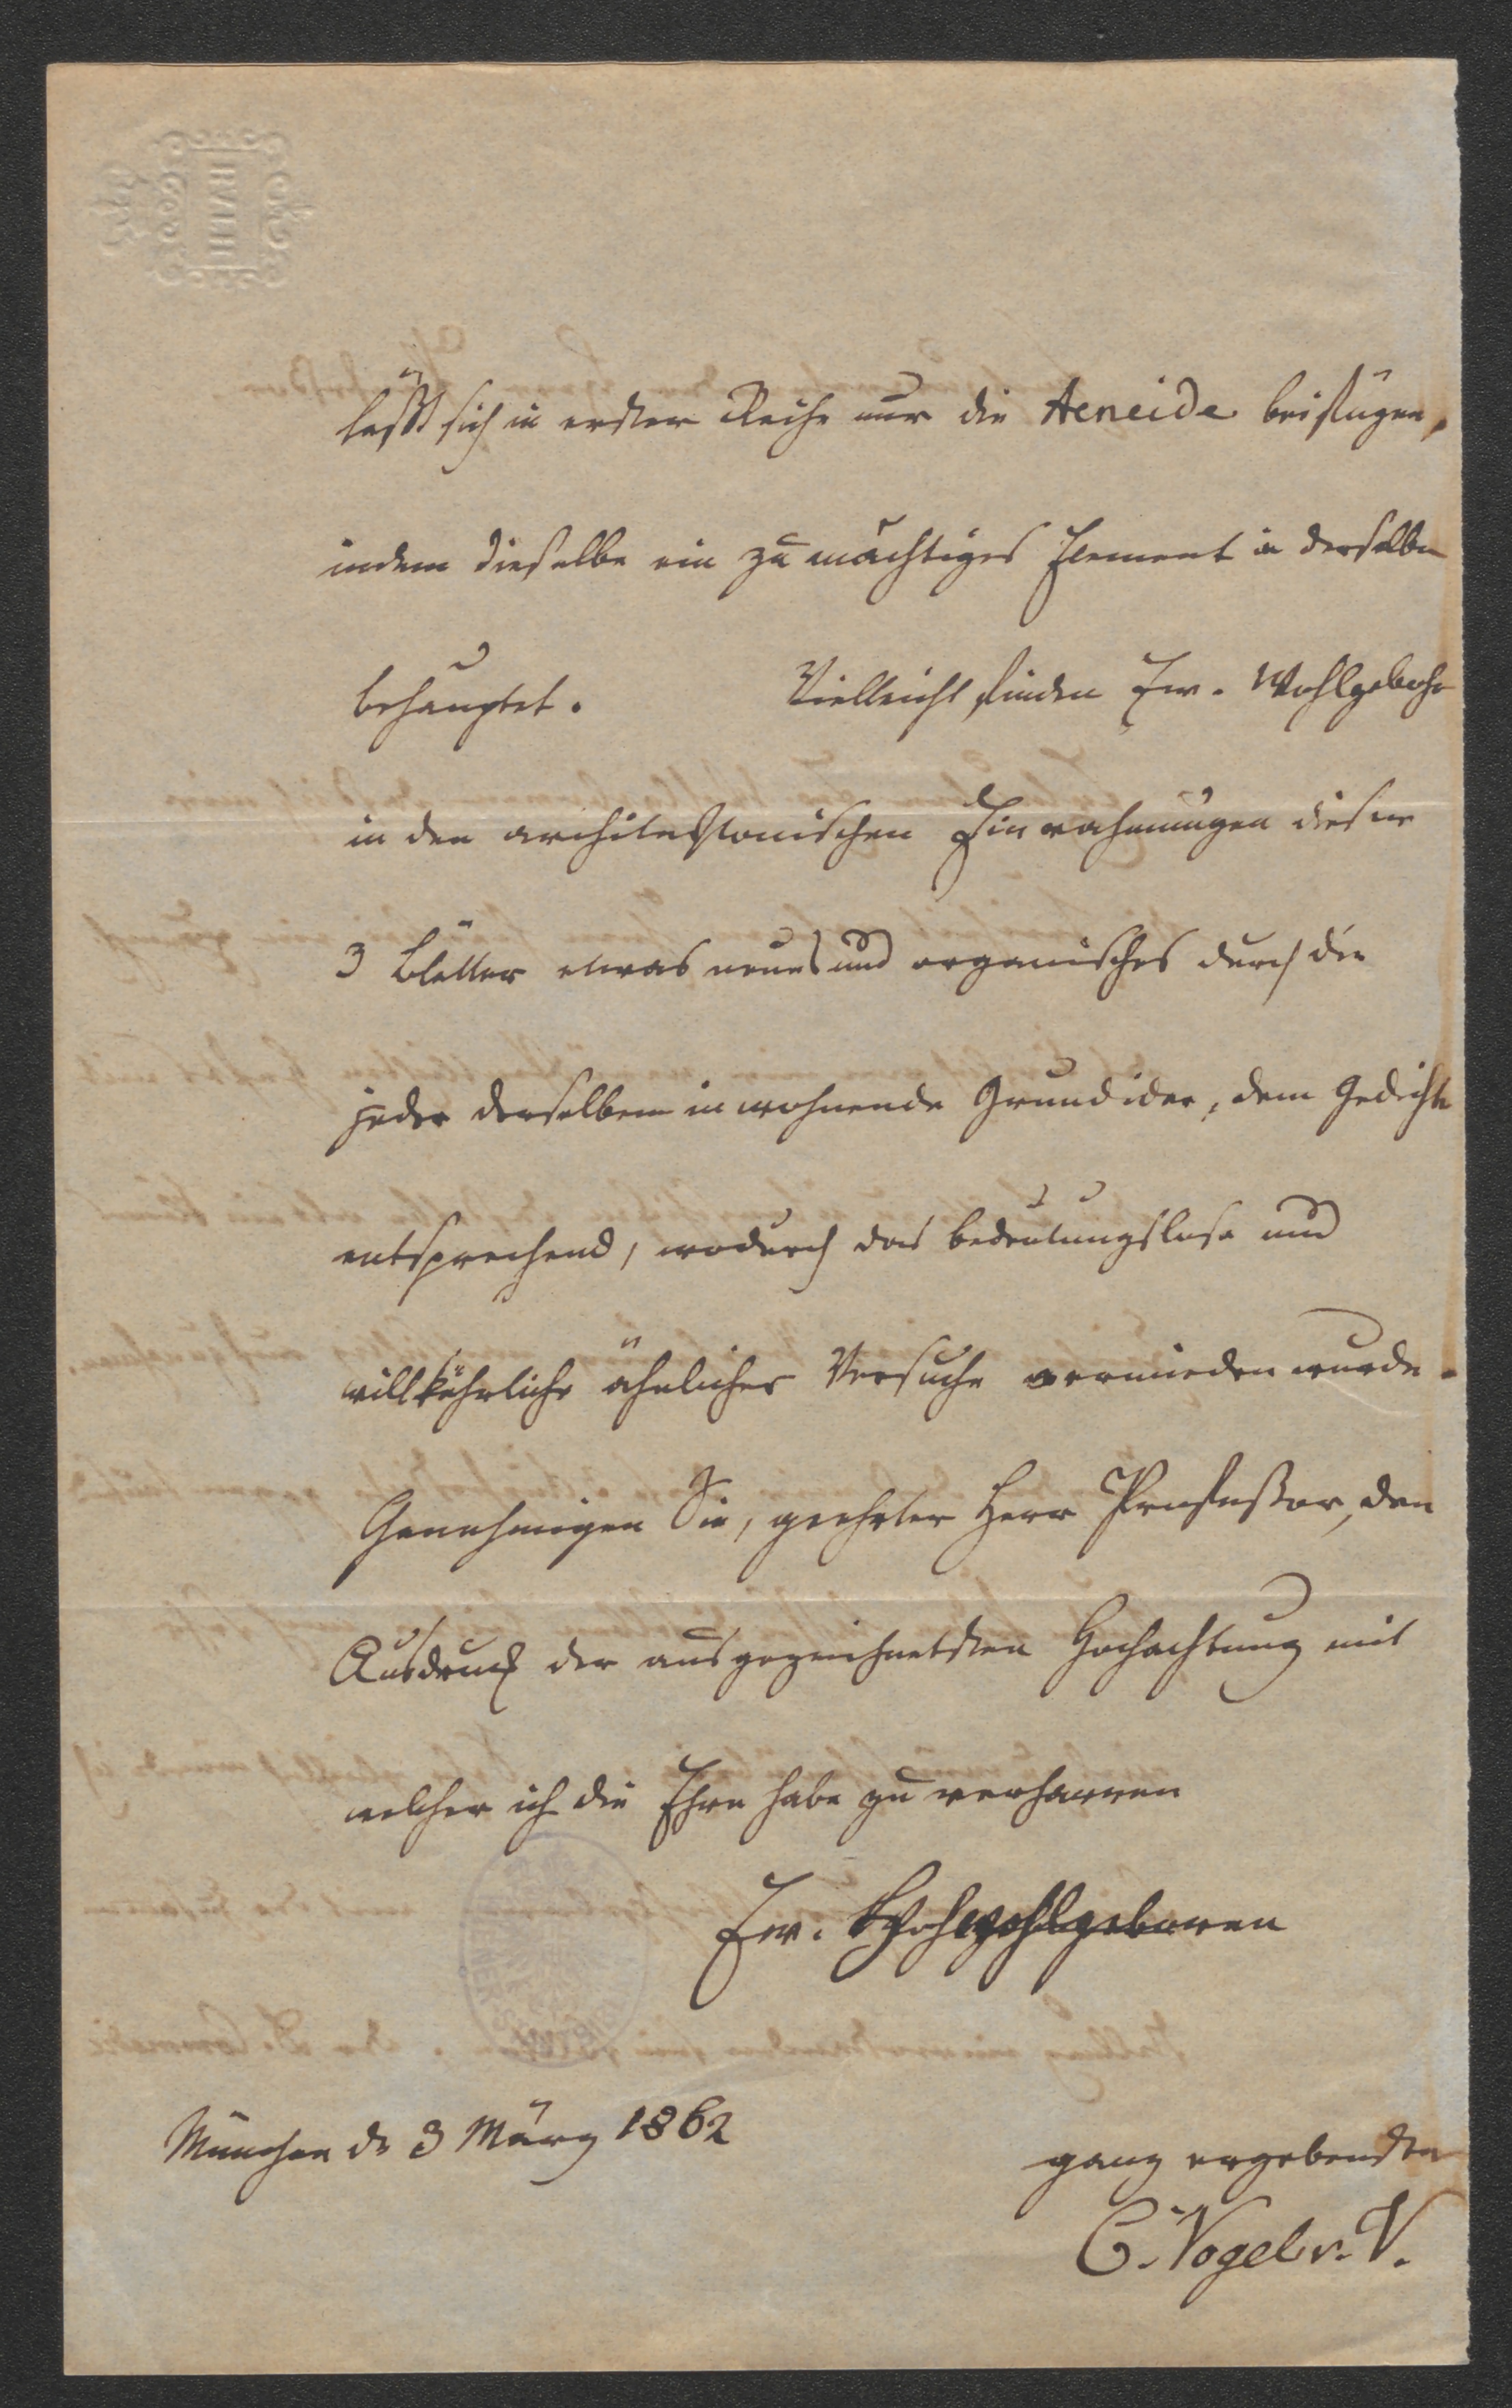 BATH
läßt sich in erster Reihe nur die Aeneide beifügen,
indem dieselbe ein zu mächtiges Element in derselben
behauptet. Vielleicht finden Ew. Wohlgebohr
in den architektonischen Einrahmungen dieser
3 Blätter etwas neues und organisches durch die
jeder derselben inwohnende Grundidee, dem Gedichte
entsprechend, wodurch das bedeutungslose und
willkührliche ähnlicher Versuche vermieden wurde.
Genehmigen Sie, geehrter Herr Professor, den
Ausdruck der ausgezeichnetsten Hochachtung mit
welcher ich die Ehre habe zu verharren
Ew. Wohlgeboren
München d. 3 März 1862
ganz ergebenster
C. Vogel v. V.